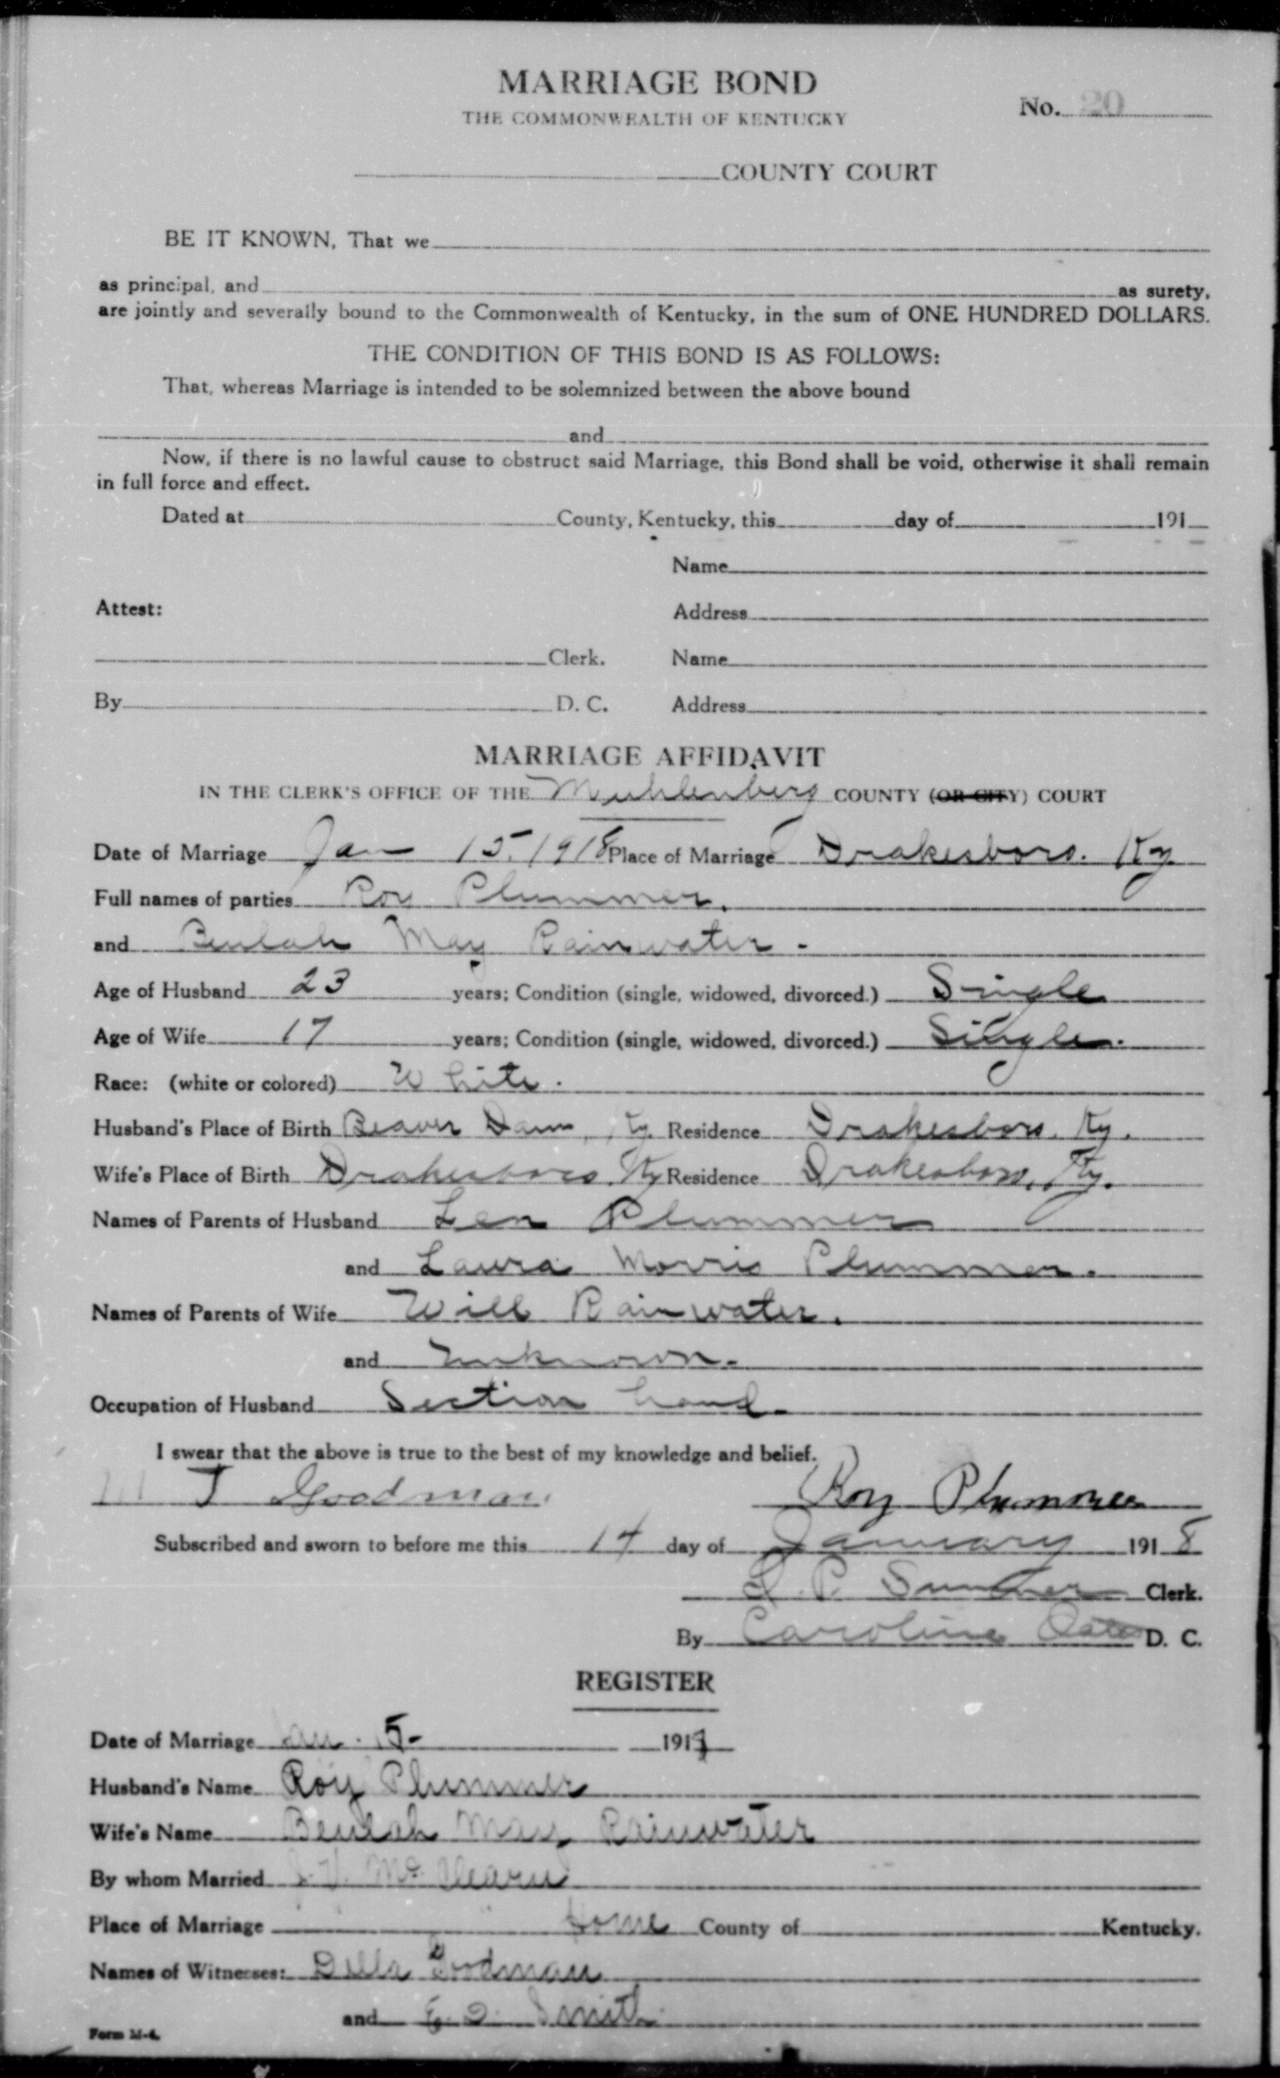 MARRIAGE BOND
THE COMMONWEALTH OF KENTUCKY
No. 20
COUNTY COURT
BE IT KNOWN, That we
as principal, and as surety,
are jointly and severally bound to the Commonwealth of Kentucky, in the sum of ONE HUNDRED DOLLARS.
THE CONDITION OF THIS BOND IS AS FOLLOWS:
That, whereas Marriage is intended to be solemnized between the above bound
and
Now, if there is no lawful cause to obstruct said Marriage, this Bond shall be void, otherwise it shall remain
in full force and effect.
Dated at County, Kentucky, this day of 191
Name
Attest: Address
Clerk. Name
By D. C. Address
MARRIAGE AFFIDAVIT
IN THE CLERK'S OFFICE OF THE Muhlenberg COUNTY (OR CITY) COURT
Date of Marriage Jan 15. 1918 Place of Marriage Drakesboro. Ky.
Full names of parties Roy Plummer.
and Beulah May Rainwater -
Age of Husband 23 years; Condition (single, widowed, divorced.) Single
Age of Wife 17 years; Condition (single, widowed, divorced.) Single.
Race: (white or colored) White.
Husband's Place of Birth Beaver Dam, Ky. Residence Drakesboro. Ky.
Wife's Place of Birth Drakesboro. Ky Residence Drakesboro, Ky.
Names of Parents of Husband Len Plummer
and Laura Morris Plummer.
Names of Parents of Wife Will Rainwater.
and Unknown.
Occupation of Husband Section hand.
I swear that the above is true to the best of my knowledge and belief.
T Goodman Roy Plummer
Subscribed and sworn to before me this 14 day of January 1918
P. Sumner Clerk.
By Caroline Oates D. C.
REGISTER
Date of Marriage Jan. 15- 191
Husband's Name Roy Plummer
Wife's Name Beulah May Rainwater
By whom Married
Place of Marriage Home County of Kentucky.
Names of Witnesses: Della Goodman
and E. D. Smith
Form M-4.